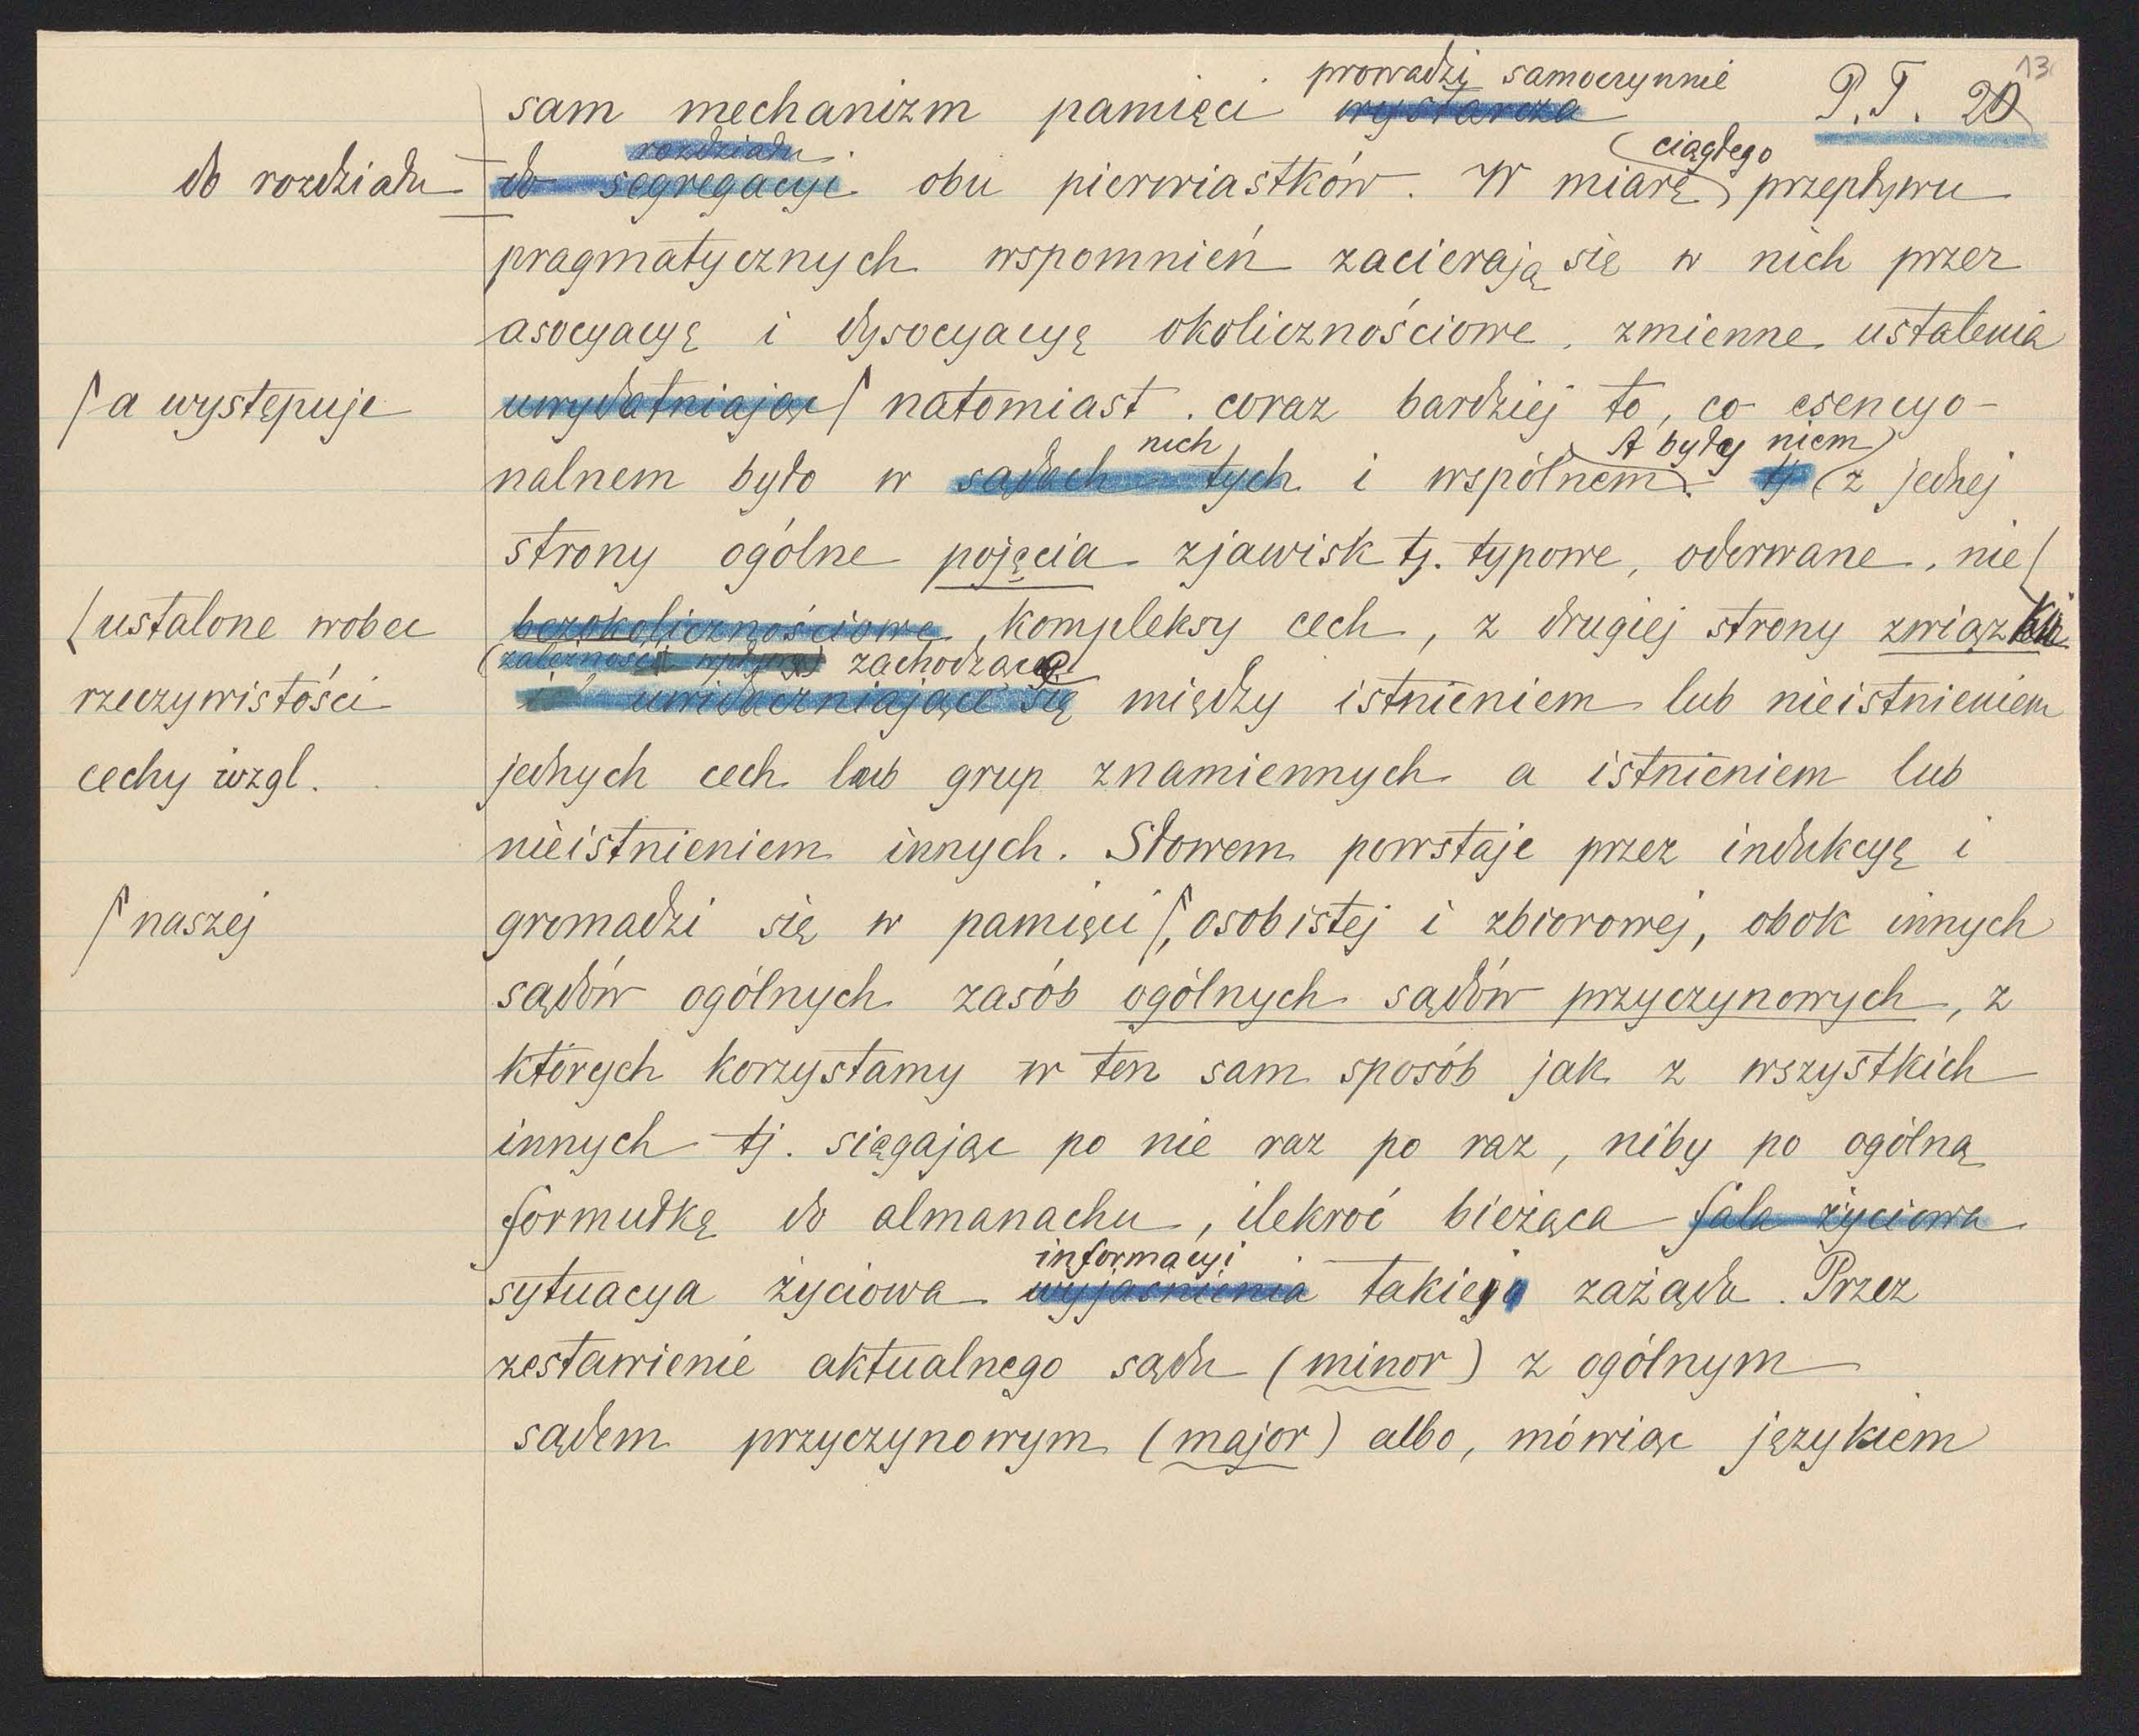 13
prowadzi samoczynnie
sam mechanizm pamięci wystarcza P. T. 20
rozdziału ciągłego
do rozdziału do segregacyi obu pierwiastków. W miarę przepływu
pragmatycznych wspomnień zacierają się w nich przez
asocyacyę i dysocyacyę okolicznościowe, zmienne ustalenia
a występuje uwydatniając natomiast coraz bardziej to, co esencyo-
nich A byłyby niem
nalnem było w sądach tych i wspólnem. tj z jednej
strony ogólne pojęcia zjawisk tj. typowe, oderwane, nie
ustalone wobec bezokolicznościowe, kompleksy cech, z drugiej strony związki
zależności zachodzące
rzeczywistości i uwidaczniające się między istnieniem lub nieistnieniem
cechy wzgl. jednych cech lub grup znamiennych a istnieniem lub
nieistnieniem innych. Słowem powstaje przez indukcyę i
naszej gromadzi się w pamięci, osobistej i zbiorowej, obok innych
sądów ogólnych zasób ogólnych sądów przyczynowych, z
których korzystamy w ten sam sposób jak z wszystkich
innych tj. sięgając po nie raz po raz, niby po ogólną
formułkę do almanachu, ilekroć bieżąca fala życiowa
informacyi
sytuacya życiowa wyjaśnienia takiej zażąda. Przez
zestawienie aktualnego sądu (minor) z ogólnym
sądem przyczynowym (major) albo, mówiąc językiem